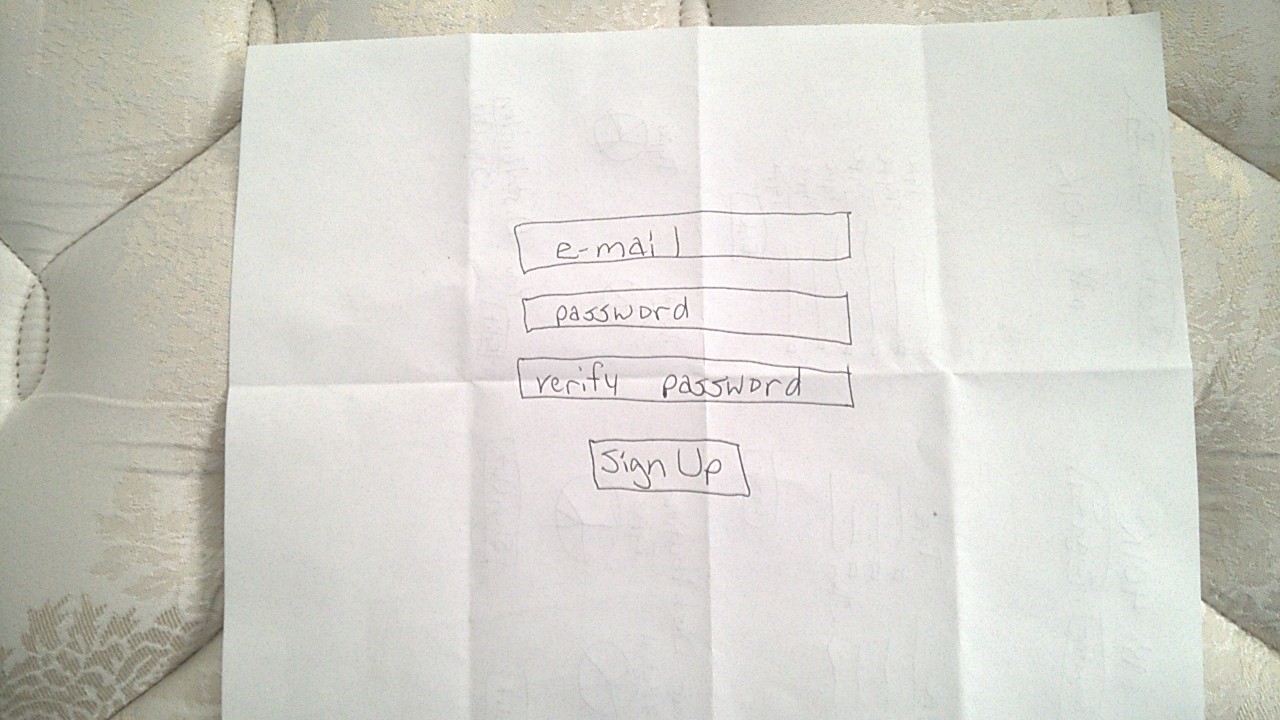 e-mail
password
verify password
Sign Up